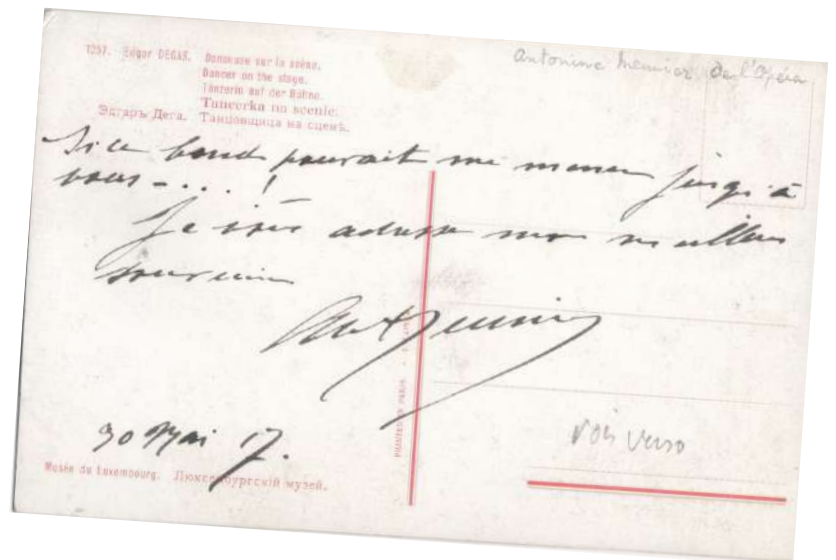 1257. Edgar DEGAS. Danseuse sur la scène.
Dancer on the stage.
Tänzerin auf der Bühne.
Tancerka na scenie.
Эдгаръ Дега. Танцовщица на сценѣ.
Antonine Meunier de l'Opéra
Si ce bond pouvait me mener jusqu'à
vous - ... !
Je vous adresse mon meilleur
souvenir
Ant Meunier
30 Mai 17.
Musée du Luxembourg. Люксембургскій музей.
voir verso